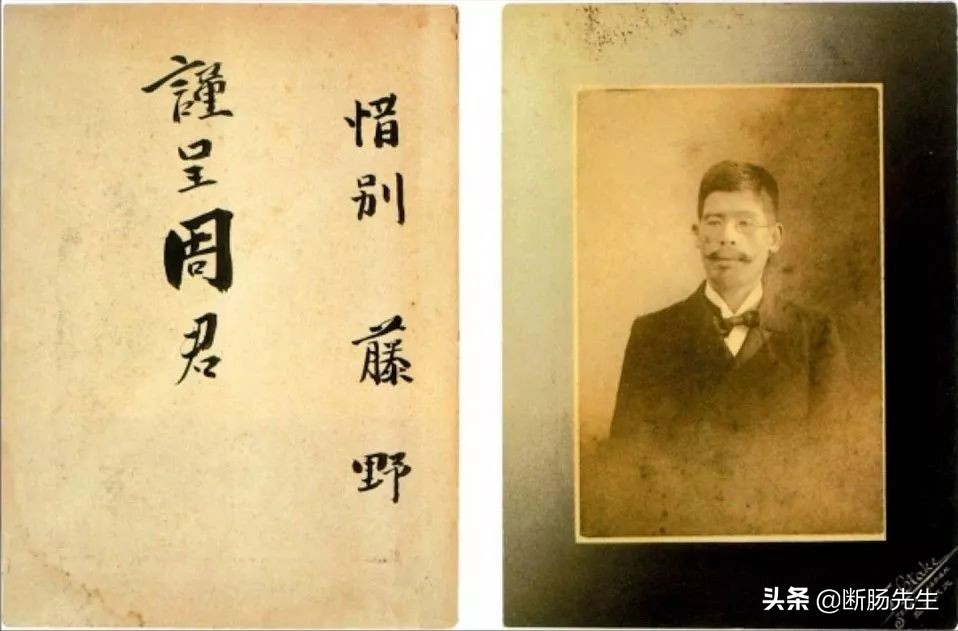 惜别 藤野
謹呈周君
头条 @断肠先生